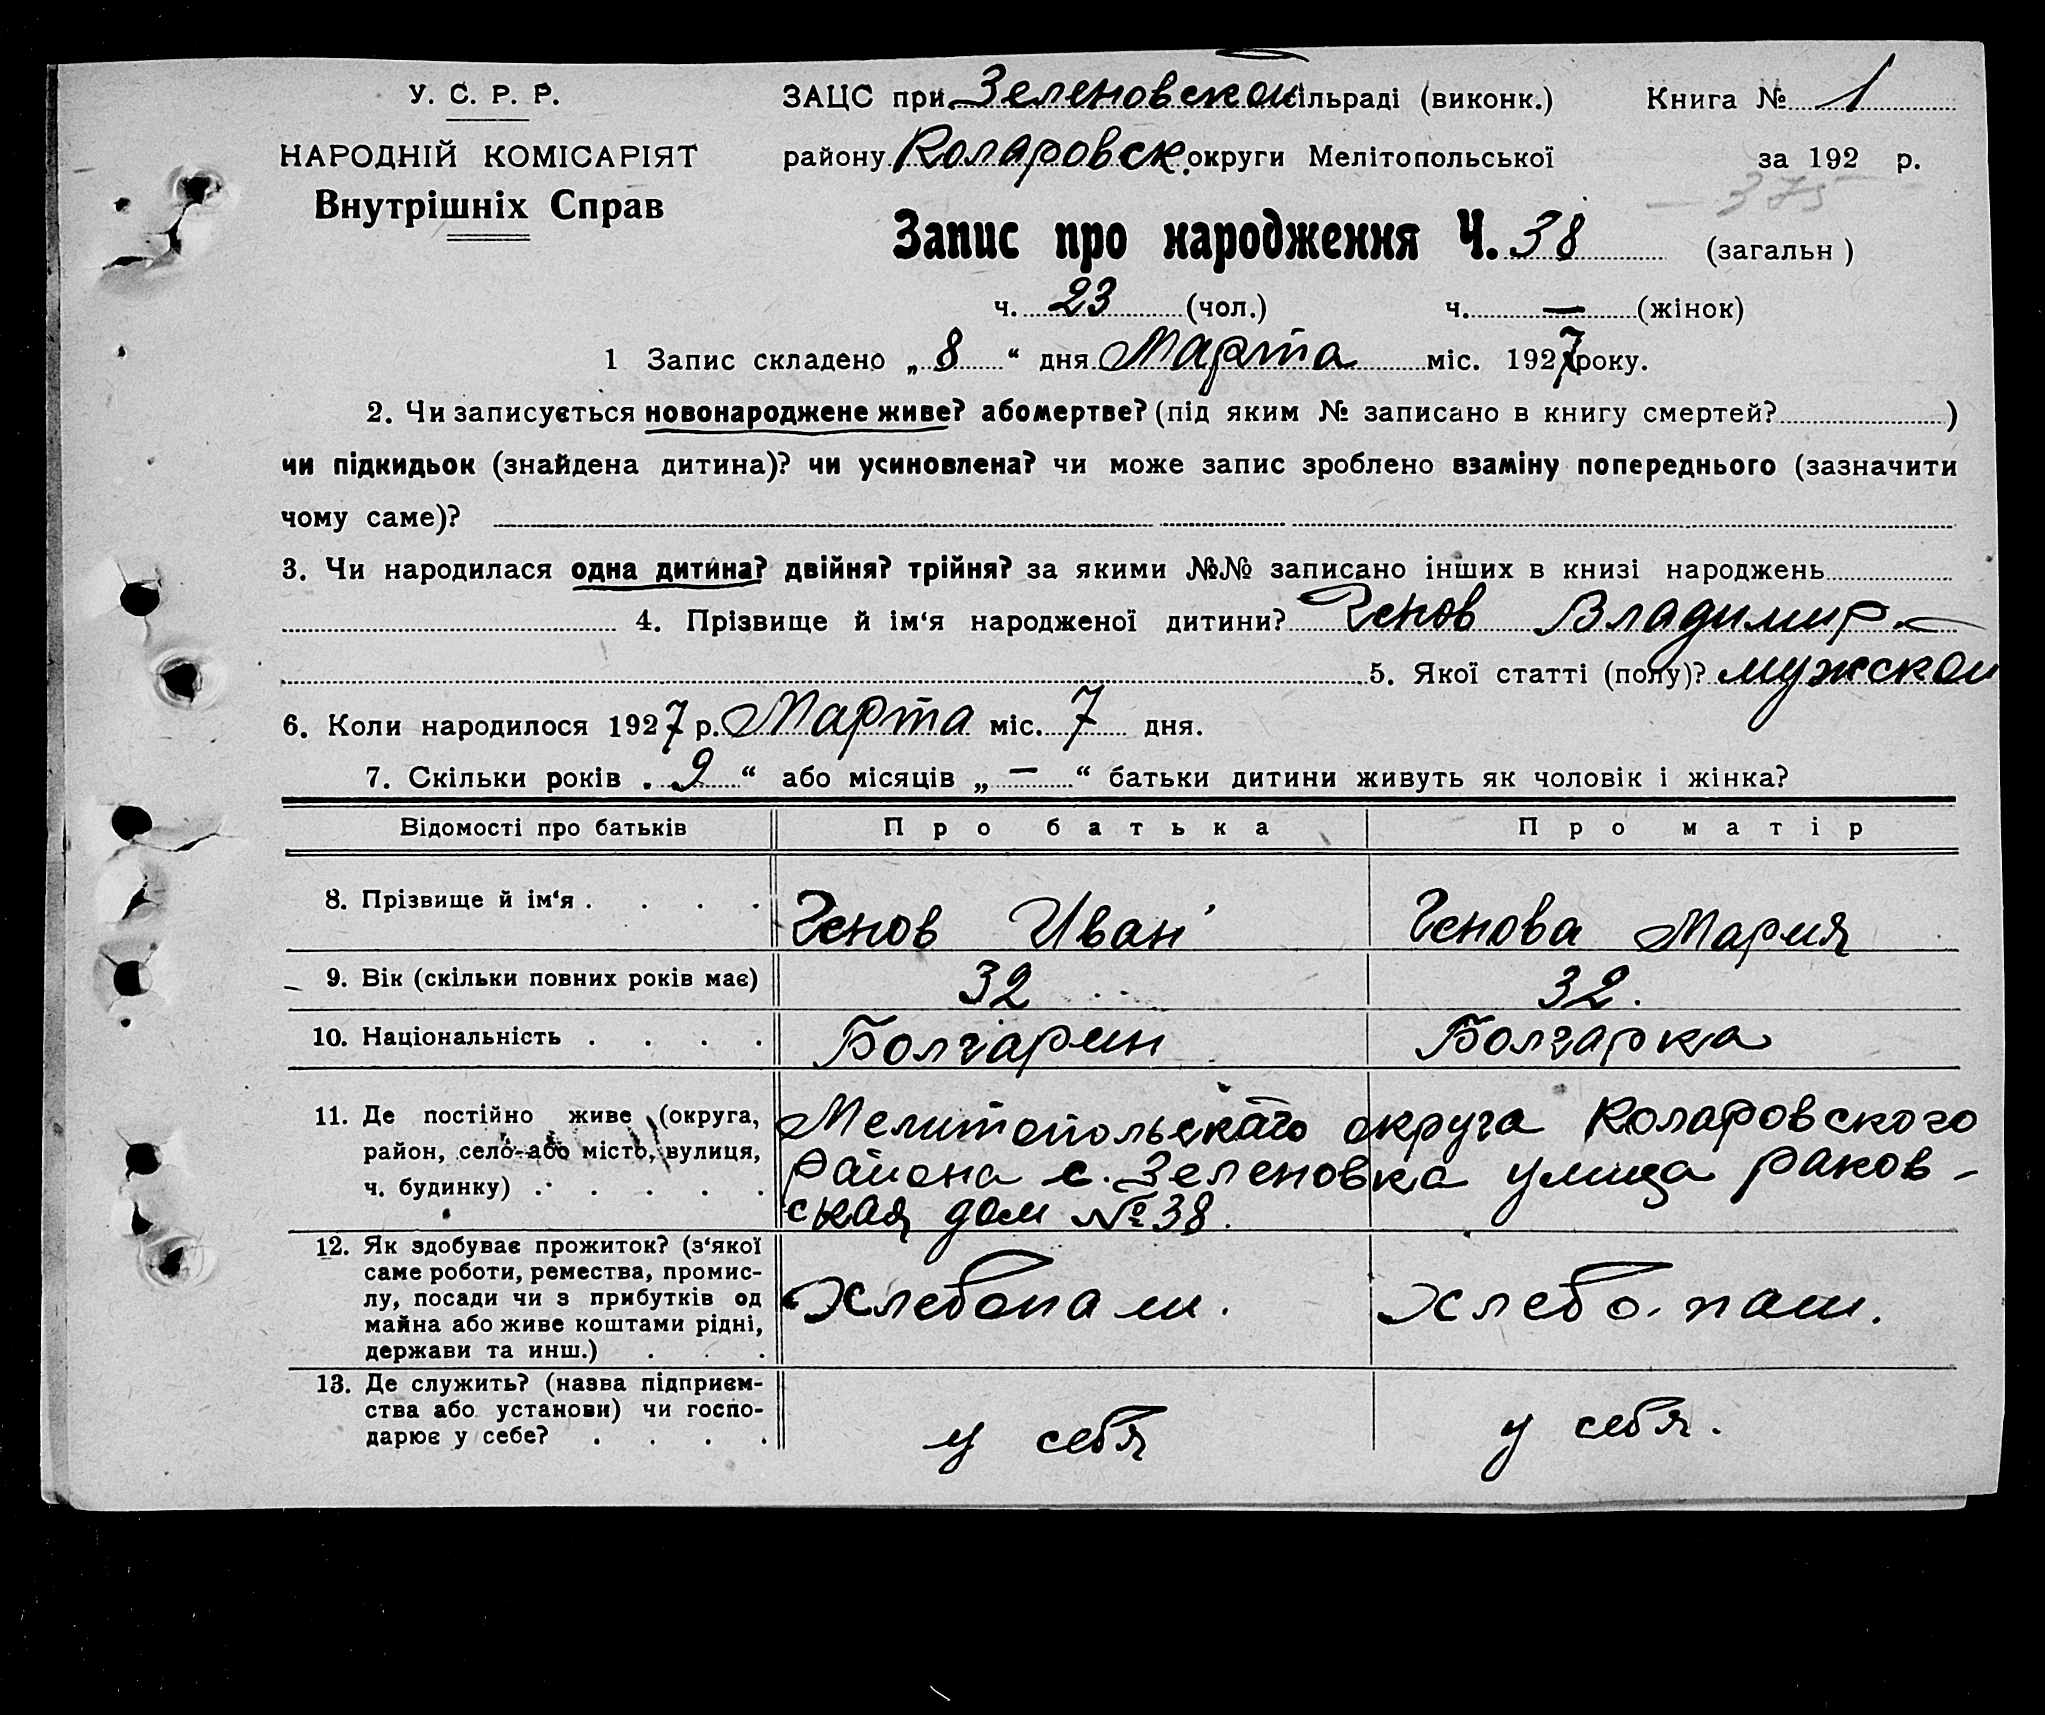 У. С. Р. Р.
НАРОДНІЙ КОМІСАРІЯТ
Внутрішніх Справ
ЗАЦС при Зеленовской сільраді (виконк.) Книга № 1
району Коларовск. округи Мелітопольської за 192 р.
375
Запис про народження Ч. 38 (загальн )
ч. 23 (чол.) ч. — (жінок)
1 Запис складено „ 8 “ дня Марта міс. 1927 року.
2. Чи записується новонароджене живе? або мертве? (під яким № записано в книгу смертей? )
чи підкидьок (знайдена дитина)? чи усиновлена? чи може запис зроблено взаміну попереднього (зазначити
чому саме)?
3. Чи народилася одна дитина? двійня? трійня? за якими №№ записано інших в книзі народжень
4. Прізвище й ім‘я народженої дитини? Генов Владимир
5. Якої статті (полу)? мужской
6. Коли народилося 1927 р. Марта міс. 7 дня.
7. Скільки років „ 9 “ або місяців „ — “ батьки дитини живуть як чоловік і жінка?
Відомості про батьків Про батька Про матір
8. Прізвище й ім‘я . . . . Генов Иван Генова Мария
9. Вік (скільки повних років має) 32 32.
10. Національність . . . . Болгарин Болгарка
11. Де постійно живе (округа,
район, село або місто, вулиця,
ч. будинку) . . . . .
Мелитопольскаго округа Коларовского
района с. Зеленовка улица раков-
ская дом № 38.
12. Як здобуває прожиток? (з‘якої
саме роботи, ремества, промис-
лу, посади чи з прибутків од
майна або живе коштами рідні,
держави та инш.) . . .
Хлебопаш. хлебо.паш.
13. Де служить? (назва підприєм-
ства або установи) чи госпо-
дарює у себе? . . . .
у себя у себя.